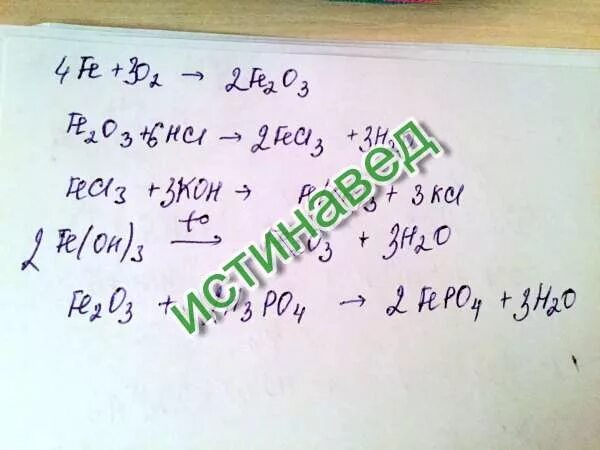 4Fe + 3O₂ → 2Fe₂O₃
Fe₂O₃ + 6HCl → 2FeCl₃ + 3H₂
FeCl₃ + 3KOH → 3 + 3KCl
2Fe(OH)₃ t° → O₃ + 3H₂O
Fe₂O₃ + H₃PO₄ → 2FePO₄ + 3H₂O
истинавед